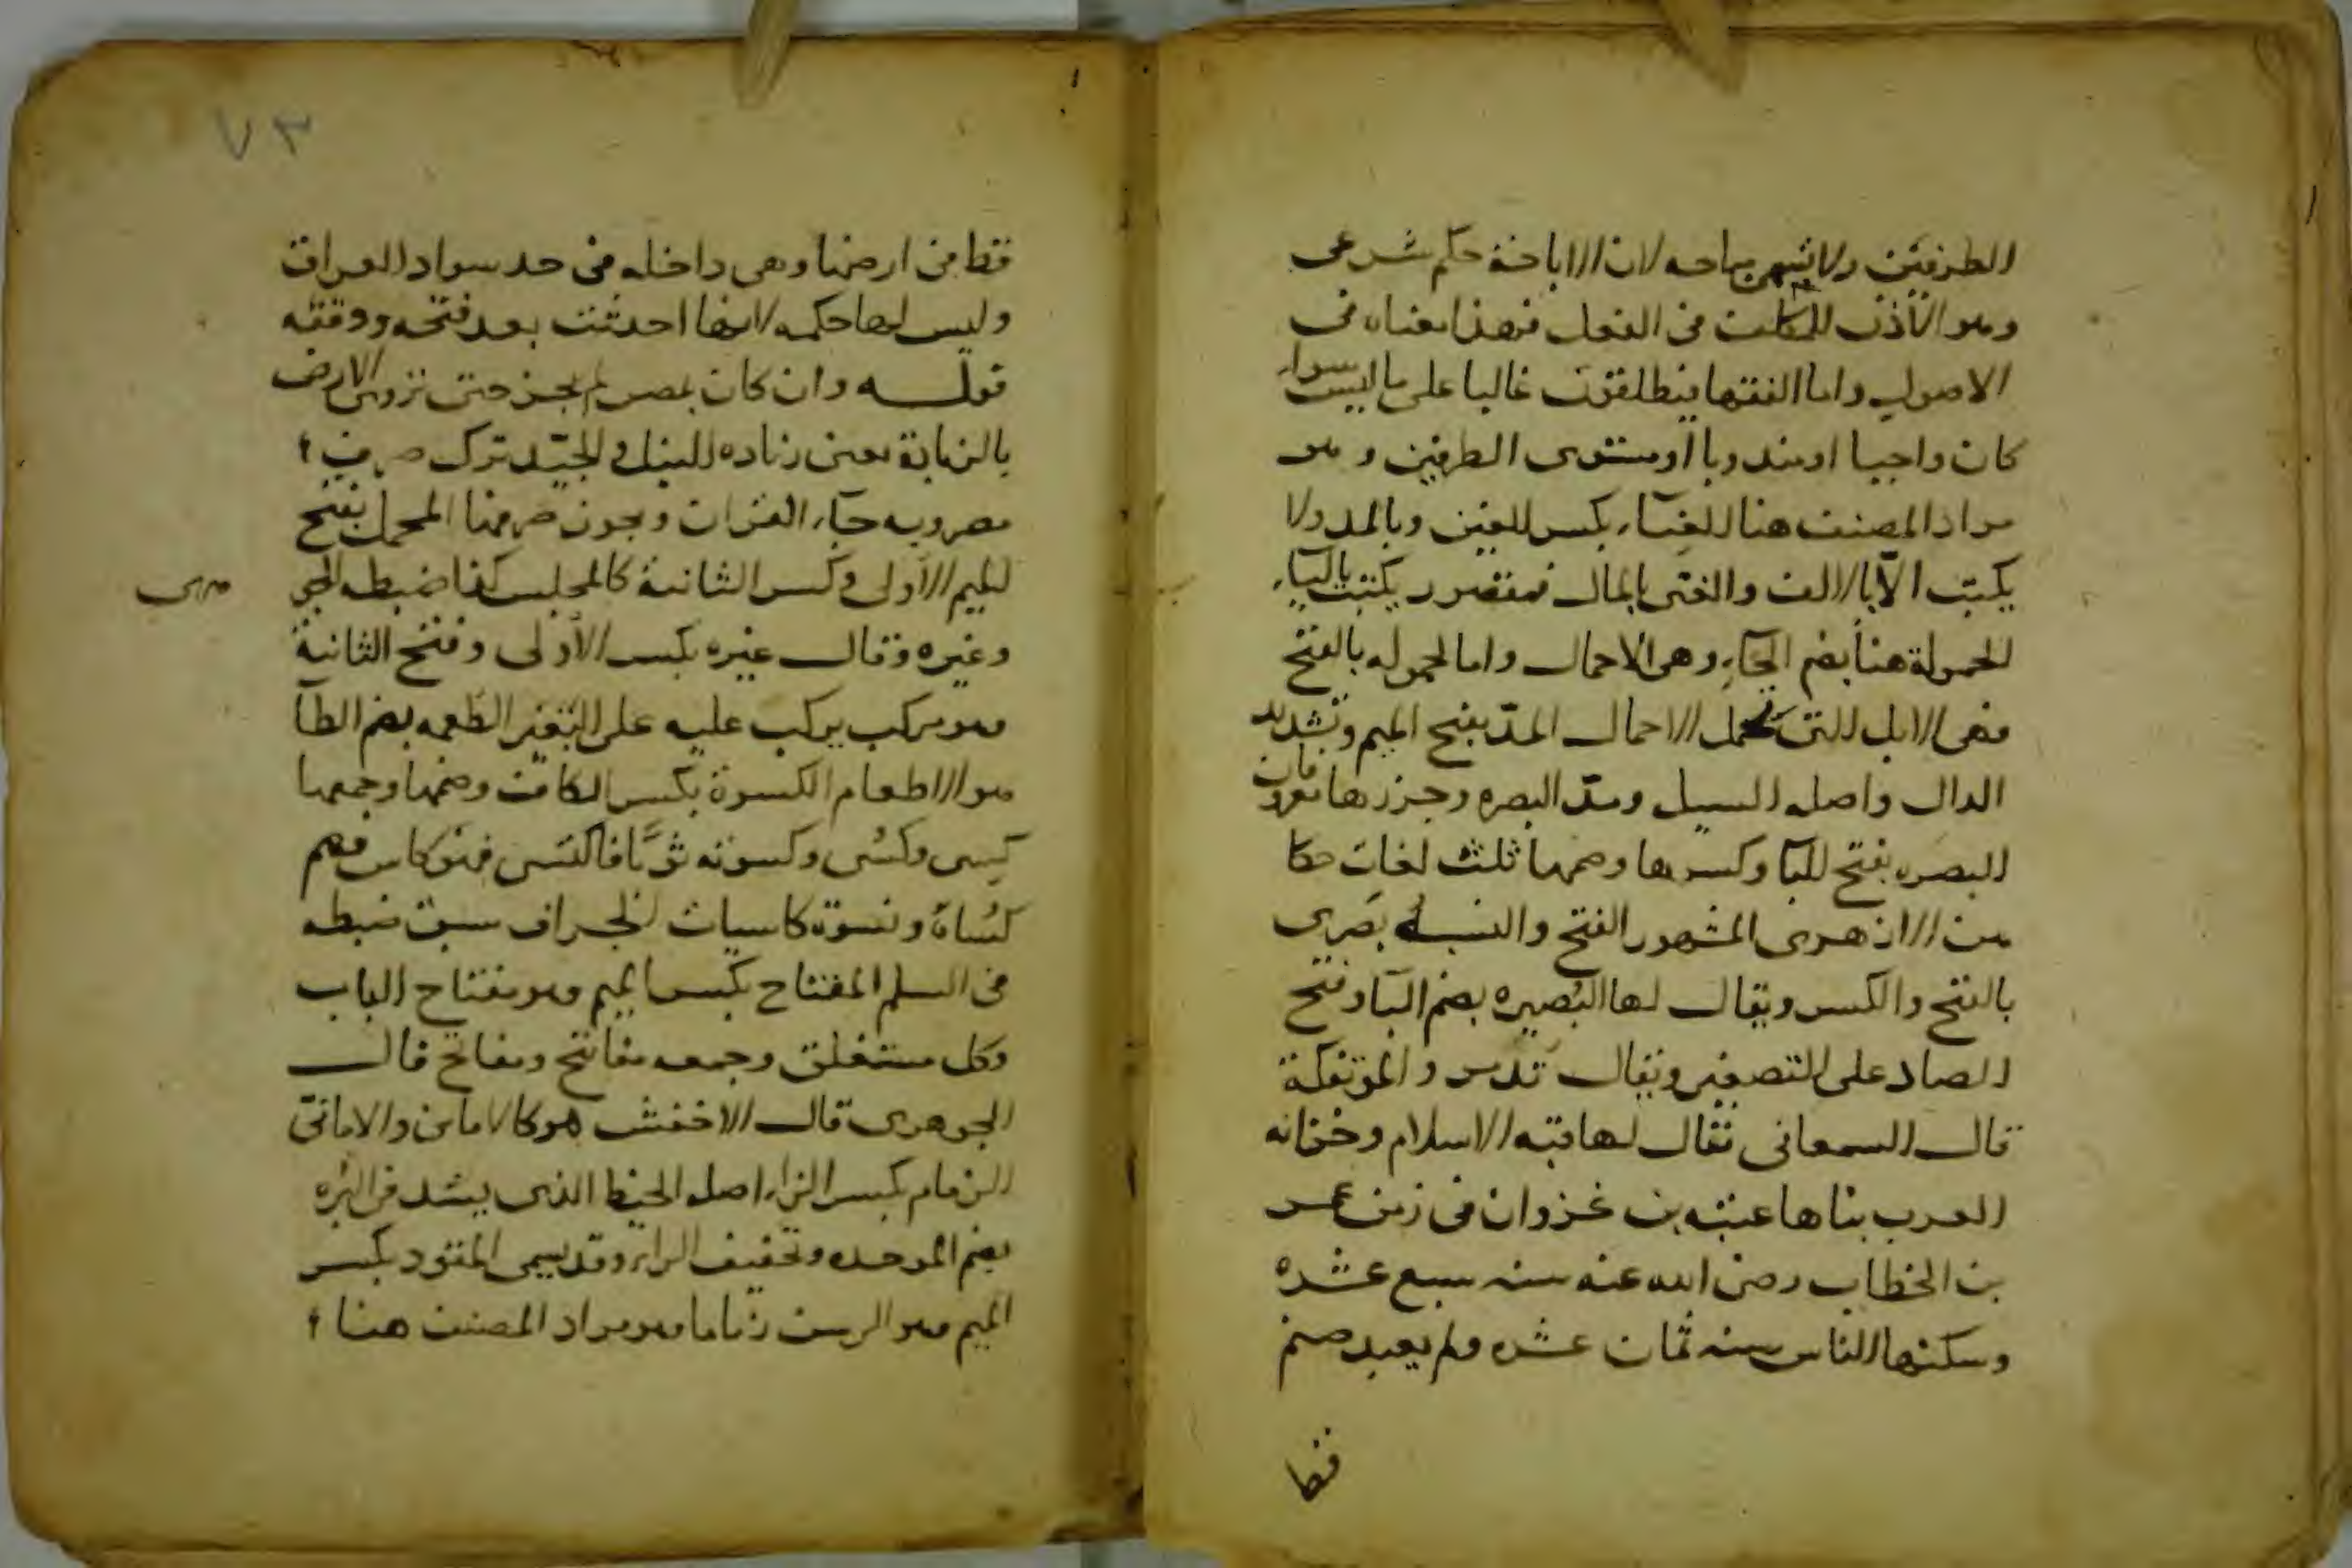 الطرفين ولا تسمى مباحه لان الاباحة حكم شرعى
وهو الاذن للمكلف فى الفعل فهذا معناه فى
الاصول واما الفقها فيطلقون غالبا على ما ليس سوا
كان واجبا او مندوبا او مستوى الطرفين وهو
مراد المصنف هنا الغنآء بكسر الغين وبالمد ولا
يكتب الا بالالف والغنى بالمال مقصور يكتب باليآء
الحمولة هنا بضم الحآء وهى الاحمال واما الحموله بالفتح
فهى الابل التى تحمل الاحمال المدّ بفتح الميم وتشديد
الدال واصله السيل ومدّ البصره وجزرها معروفان
البصره بفتح البآ وكسرها وضمها ثلث لغات حكا
هن الازهرى المشهور الفتح والنسبه بصرى
بالفتح والكسر ويقال لها البُصيره بضم البآ وفتح
الصاد على التصغير ويقال تدمر والمؤتفكة
قال السمعانى يقال لها قبه الاسلام وخزانه
العرب بناها عتبه بن غزوان فى زمن عمر
بن الخطاب رضى الله عنه سنه سبع عشره
وسكنها الناس سنه ثمان عشره ولم يعبد صنم
قط
٧٣
قط فى ارضها وهى داخله فى حد سواد العراق
وليس لها حكمه لانها احدثت بعد فتحه ووقفه
قولــه وان كان بمصر لم يجز حتى تروى الارض
بالزيادة يعنى زياده النيل والجيّد ترك صرف
مصر وبه جآء القران ويجوز صرفها المحمل بفتح
الميم الاولى وكسر الثانية كالمجلس كذا ضبطه الجو
هرى
وغيره وقال غيره بكسر الاولى وفتح الثانية
وهو مركب يركب عليه على البعير الطعمه بضم الطآ
هو الاطعام الكسوة بكسر الكاف وضمها وجمعها
كِسى وكُسى وكسوته ثوبًا فاكتسى فهو كاس وهم
كُساة ونسوة كاسيات الجراف سبق ضبطه
فى السلم المفتاح بكسر الميم وهو مفتاح الباب
وكل مستغلق وجمعه مفاتيح ومفاتح قال
الجوهرى قال الاخفش هو كالامانى والامانىّ
الزمام بكسر الزاء اصله الخيط الذى يشد فى البُره
بضم الموحده وتخفيف الراء وقد يسمى المقود بكسر
الميم وهو الرسن زماما وهو مراد المصنف هنا